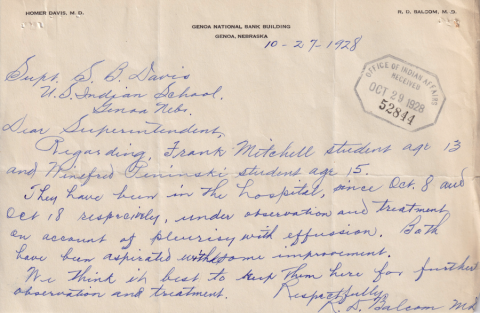 HOMER DAVIS, M. D.
R. D. BALCOM, M. D.
GENOA NATIONAL BANK BUILDING
GENOA, NEBRASKA
10-27-1928
OFFICE OF INDIAN AFFAIRS
RECEIVED
OCT 29 1928
52844
Supt. S. B. Davis
U.S. Indian School.
Genoa Nebr.
Dear Superintendent,
Regarding, Frank Mitchell student age 13
and Winefred student age 15.
They have been in the hospital, since Oct. 8 and
Oct 18 respectively, under observation and treatment
on account of pleurisy with effusion. Both
have been aspirated with some improvement.
We think it best to keep them here for further
observation and treatment.
Respectfully
R. D. Balcom MD